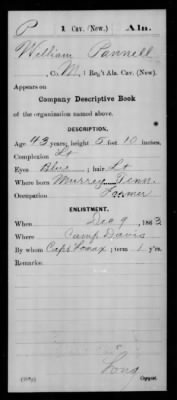 P 1 Cav. (New.) Ala.
William Pannell
, Co. M, 1 Reg't Ala. Cav. (New).
Appears on
Company Descriptive Book
of the organization named above.
DESCRIPTION.
Age 43 years; height 5 feet 10 inches.
Complexion Lt
Eyes Blue ; hair Lt
Where born Murrey Tenn
Occupation Farmer
ENLISTMENT.
When Dec 9 , 1863
Where Camp Davis
By whom Capt Lomax ; term 1 y'rs.
Remarks:
Long
Copyist.